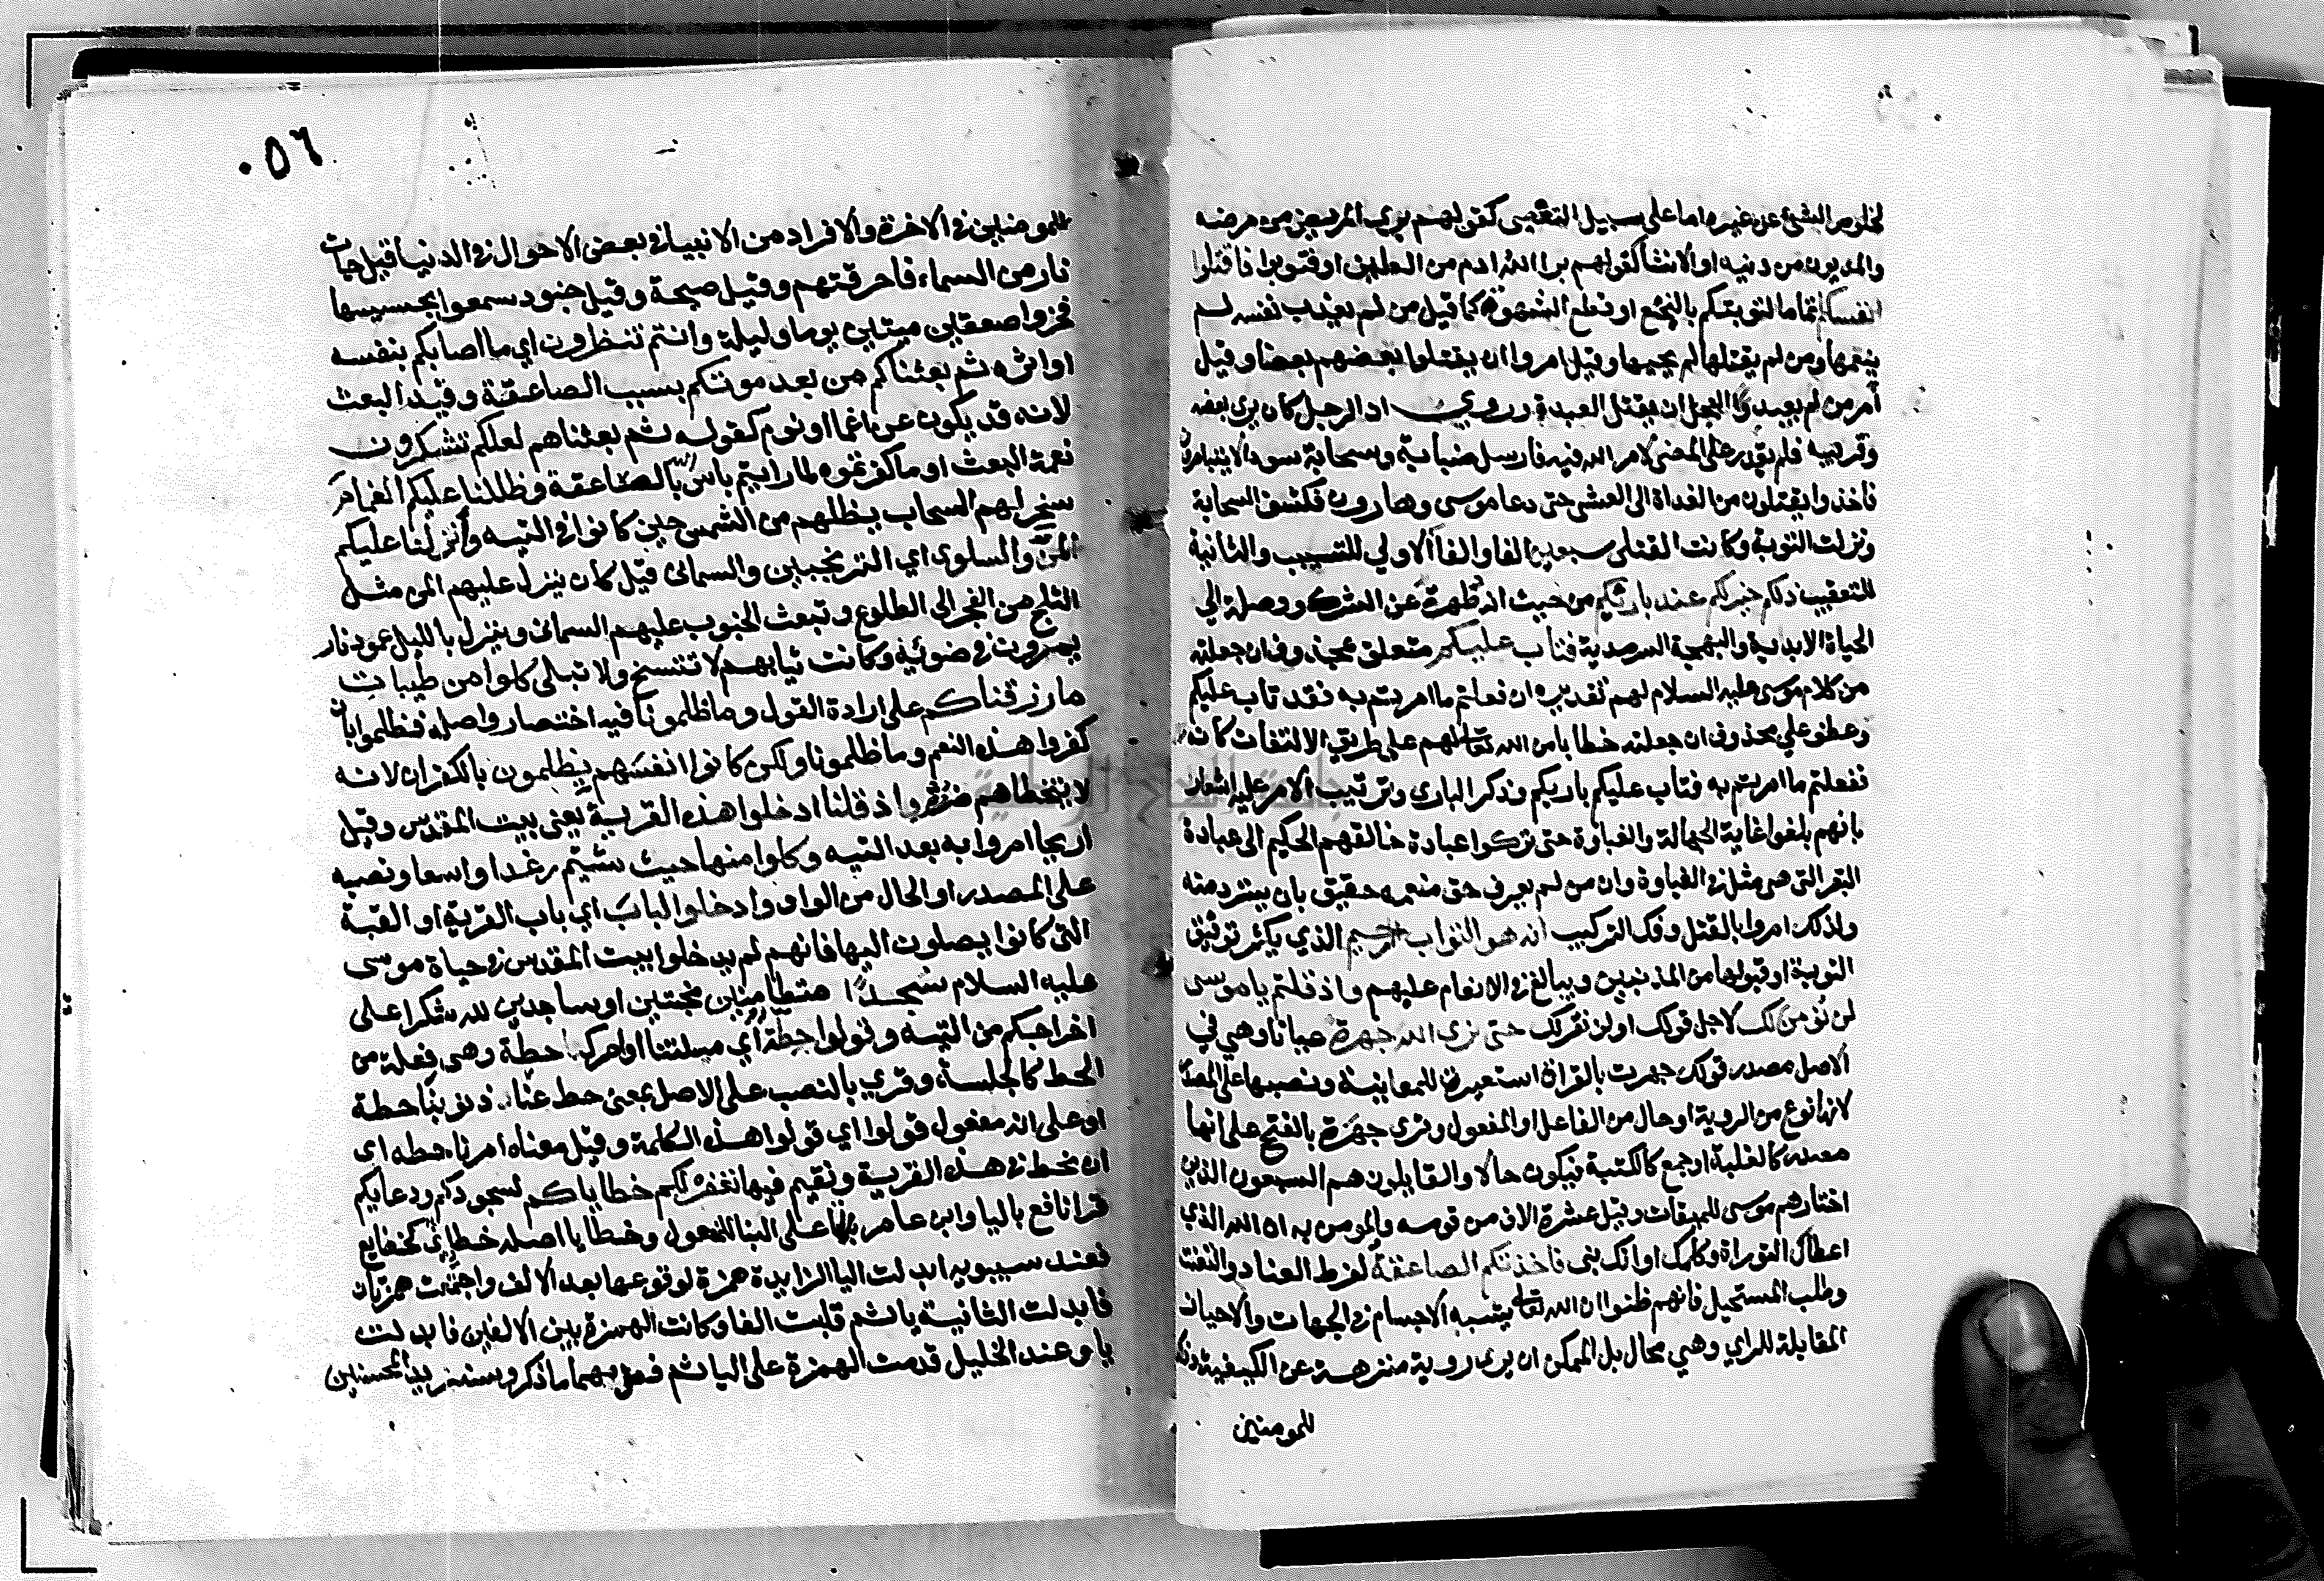 لخلوص الشيئ عن غيره اما على سبيل التقصى كقولهم برى المريض من مرضه
والمديون من دينه او الانشا كقولهم برا الله ادم من الطين او فتوبوا فاقتلوا
انفسكم تماما لتوبتكم بالبخع او قطع الشهوة كما قيل من لم يعذب نفسه لم
ينعمها ومن لم يقتلها لم يحيها وقيل امروا ان يقتلوا بعضهم بعضا وقيل
أمر من لم يعبد العجل ان يقتل العبدة وروي ان الرجل كان يرى بعضه
وقريبه فلم يقدر على المضى لامر الله فيه فارسل ضبابة وسحابة سودا لا يتباصرون
فاخذوا يقتلون من الغداة الى العشى حتى دعا موسى وهارون فكشف السحابة
ونزلت التوبة وكانت القتلى سبعين الفا والفأ الاولي للتسبيب والثانية
للتعقيب ذلكم خير لكم عند بارئكم من حيث انه طهرة عن الشرك ووصلة الي
الحياة الابدية والبهجة السرمدية فتاب عليكم متعلق بمحذوف ان جعلته
من كلام موسى عليه السلام لهم تقديره ان فعلتم ما امرتم به فقد تاب عليكم
وعطف علي محذوف ان جعلته خطابا من الله تعالى لهم على طريق الالتفات كانه
ففعلتم ما امرتم به فتاب عليكم باريكم وذكر الباري وترتيب الامر عليه اشعار
بانهم بلغوا غاية الجهالة والغباوة حتى تركوا عبادة خالقهم الحكيم الى عبادة
البقر التى هى مثل فى الغباوة وان من لم يعرف حق منعمه حقيق بان يسترد منه
ولذلك امروا بالقتل وفك التركيب انه هو التواب الرحيم الذي يكثر توفيق
التوبة او قبولها من المذنبين ويبالغ فى الانعام عليهم واذ قلتم يا موسى
لن نؤمن لك لاجل قولك او لن نقر لك حتى نرى الله جهرة عيانا وهي في
الاصل مصدر قولك جهرت بالقراة استعيرت للمعاينة ونصبها على المصدر
لانها نوع من الروية او حال من الفاعل او المفعول وقرى جهرة بالفتح على انها
مصدر كالغلبة او جمع كالكتبة فيكون حالا والقايلون هم السبعون الذين
اختارهم موسى للميقات وقيل عشرة الاف من قومه والمومن به ان الله الذي
اعطاك التوراة وكلمك او انك نبى فاخذتكم الصاعقة لفرط العناد والتعنت
وطلب المستحيل فانهم ظنوا ان الله تعالى يشبه الاجسام فى الجهات والاحيان
المقابلة للراي وهي محال بل الممكن ان يرى روية منزهة عن الكيفية وذلك
للمومنين
٠٥٦
للمومنين فى الاخرة والافراد من الانبيا فى بعض الاحوال فى الدنيا قيل جات
نار من السماء فاحرقتهم وقيل صيحة وقيل جنود سمعوا بحسيسها
فخروا صعقين ميتين يوما وليلة وانتم تنظرون اي ما اصابكم بنفسه
او اثره ثم بعثناكم من بعد موتكم بسبب الصاعقة وقيد البعث
لانه قد يكون عن اغما او نوم كقوله ثم بعثناهم لعلكم تشكرون
نعمة البعث او ما كفرتموه لما رايتم باس الله بالصاعقة وظللنا عليكم الغمام
سخر لهم السحاب يظلهم من الشمس حين كانوا فى التيه وأنزلنا عليكم
المن والسلوى اي الترنجبين والسمانى قيل كان ينزل عليهم المن مثل
الثلج من الفجر الى الطلوع وتبعث الجنوب عليهم السمانى وينزل بالليل عمود نار
يسيرون فى ضوئه وكانت ثيابهم لا تتسخ ولا تبلى كلوا من طيبات
ما رزقناكم على ارادة القول وما ظلمونا فيه اختصار واصله فظلموا بان
كفروا هذه النعم وما ظلمونا ولكن كانوا انفسهم يظلمون بالكفران لانه
لا يتخطاهم ضرره واذ قلنا ادخلوا هذه القرية يعنى بيت المقدس وقيل
اريحا امروا به بعد التيه وكلوا منها حيث شئيتم رغدا واسعا ونصبه
على المصدر او الحال من الواو وادخلوا الباب اي باب القرية او القبة
التى كانوا يصلون اليها فانهم لم يدخلوا بيت المقدس فى حياة موسى
عليه السلام سجدا متطامنين مخبتين او ساجدين لله شكرا على
اخراجكم من التيه وقولوا حطة أي مسئلتنا او امرك حطة وهى فعلة من
الحط كالجلسة وقري بالنصب على الاصل بمعنى حط عنا ذنوبنا حطة
او على انه مفعول قولوا اي قولوا هذه الكلمة وقيل معناه امرنا حطه اى
ان نحط فى هذه القرية ونقيم فيها نغفر لكم خطاياكم لسجودكم ودعايكم
قرا نافع باليا وابن عامر بالتا على البنا للمفعول وخطايا اصله خطايئ كخضايع
فعند سيبويه ابدلت اليا الزايدة همزة لوقوعها بعد الالف واجتمعت همزتان
فابدلت الثانية يا ثم قلبت الفا وكانت الهمزة بين الالفين فابدلت
يا وعند الخليل قدمت الهمزة على اليا ثم فعل بهما ما ذكر وسنزيد المحسنين